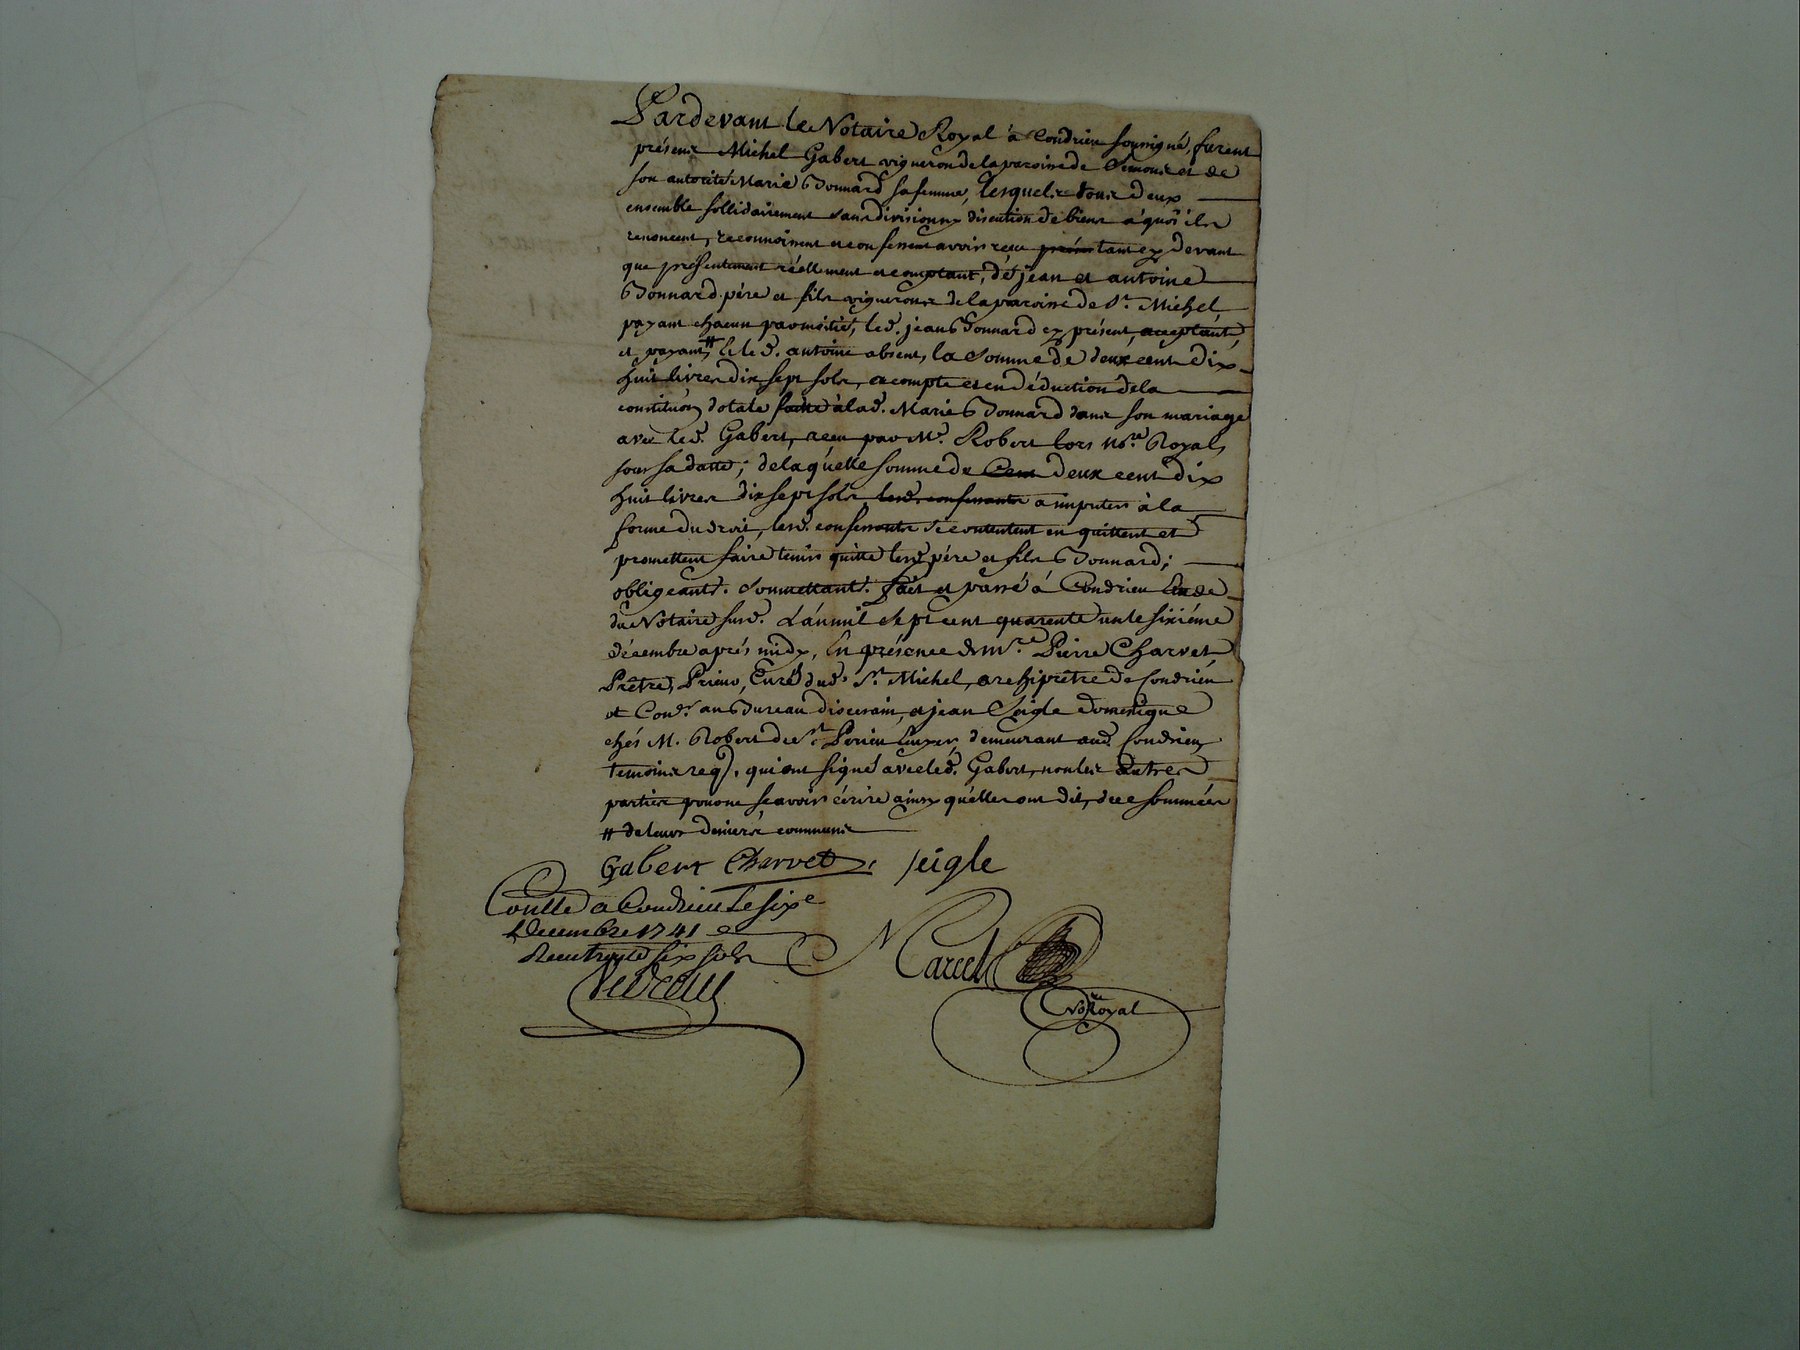 Pardevant le Notaire Royal à Condrieu soussigné, furent
présens Michel Gabert vigneron de la paroisse de Semons et de
son autorité Marie Bonnard sa femme, lesquels tous deux
ensemble sollidairement sans division ny discution de biens à quoi ils
renoncent, reconnoissent et confessent avoir reçu tant cy devant
que présentement réellement et comptant, de jean et antoine
Bonnard père et fils vignerons de la paroisse de St. Michel,
payant chacun par moitié, led. jean Bonnard cy présent, acceptant,
et payant, # & led. antoine absent, la somme de deux cent dix
huit livres dix sept sols, a compte et en déduction de la
constitu͠on dotale faitte à lad. Marie Bonnard dans son mariage
avec led. Gabert, reçu par Me. Robert lors no.re Royal,
sous sa datte; de laquelle somme de deux cent dix
huit livres dix sept sols a imputer à la
forme du droit, lesd. confessants se contentent en quittent et
promettent faire tenir quitte lesd. père et fils Bonnard;
obligeants. soumettants. fait et passé à Condrieu Etude
du Notaire susd. L'an mil sept cent quarente un le sixiéme
décembre aprés midy, En présence de Mre. Pierre Charvet
Prêtre, Prieur, Curé dud. St. Michel, archiprêtre de Condrieu
et Con.er au Bureau diocesain, et jean Seigle domestique
chés M. Robert de St. demeurant aud. Condrieu,
temoins req., qui ont signé avec led. Gabert, non les autres
parties pour ne sçavoir écrire ainsy qu'elles ont dit, de ce sommées
# de leurs deniers communs
Gabert Charvet. seigle
Conllé a Condrieu Le sixe
Decembre 1741
Recu trente six sols
Marcel
Nore Royal